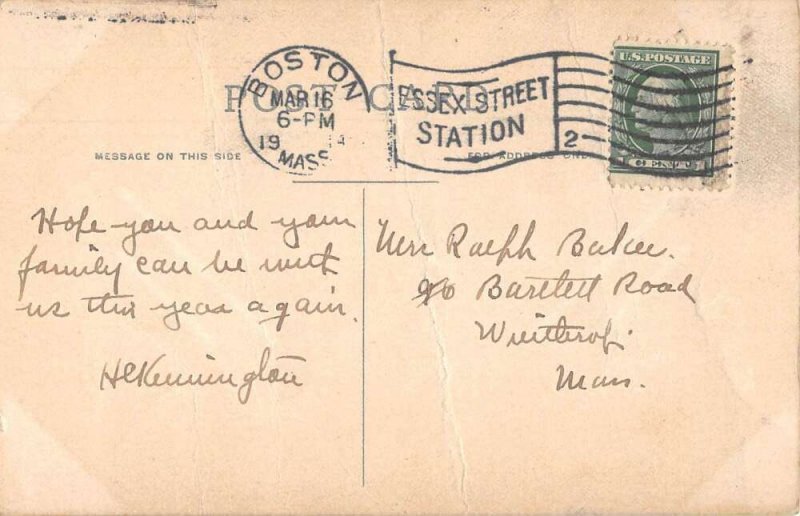 POST CARD
BOSTON
MAR 16
6-PM
19
MASS
ESSEX STREET
STATION
2
U.S. POSTAGE
CENT
MESSAGE ON THIS SIDE
FOR ADDRESS ON
Hope you and your
family can be with
us this year again.
Kennington
Mrs Ralph Baker.
90 Bartlett Road
Winthrop.
Mass.